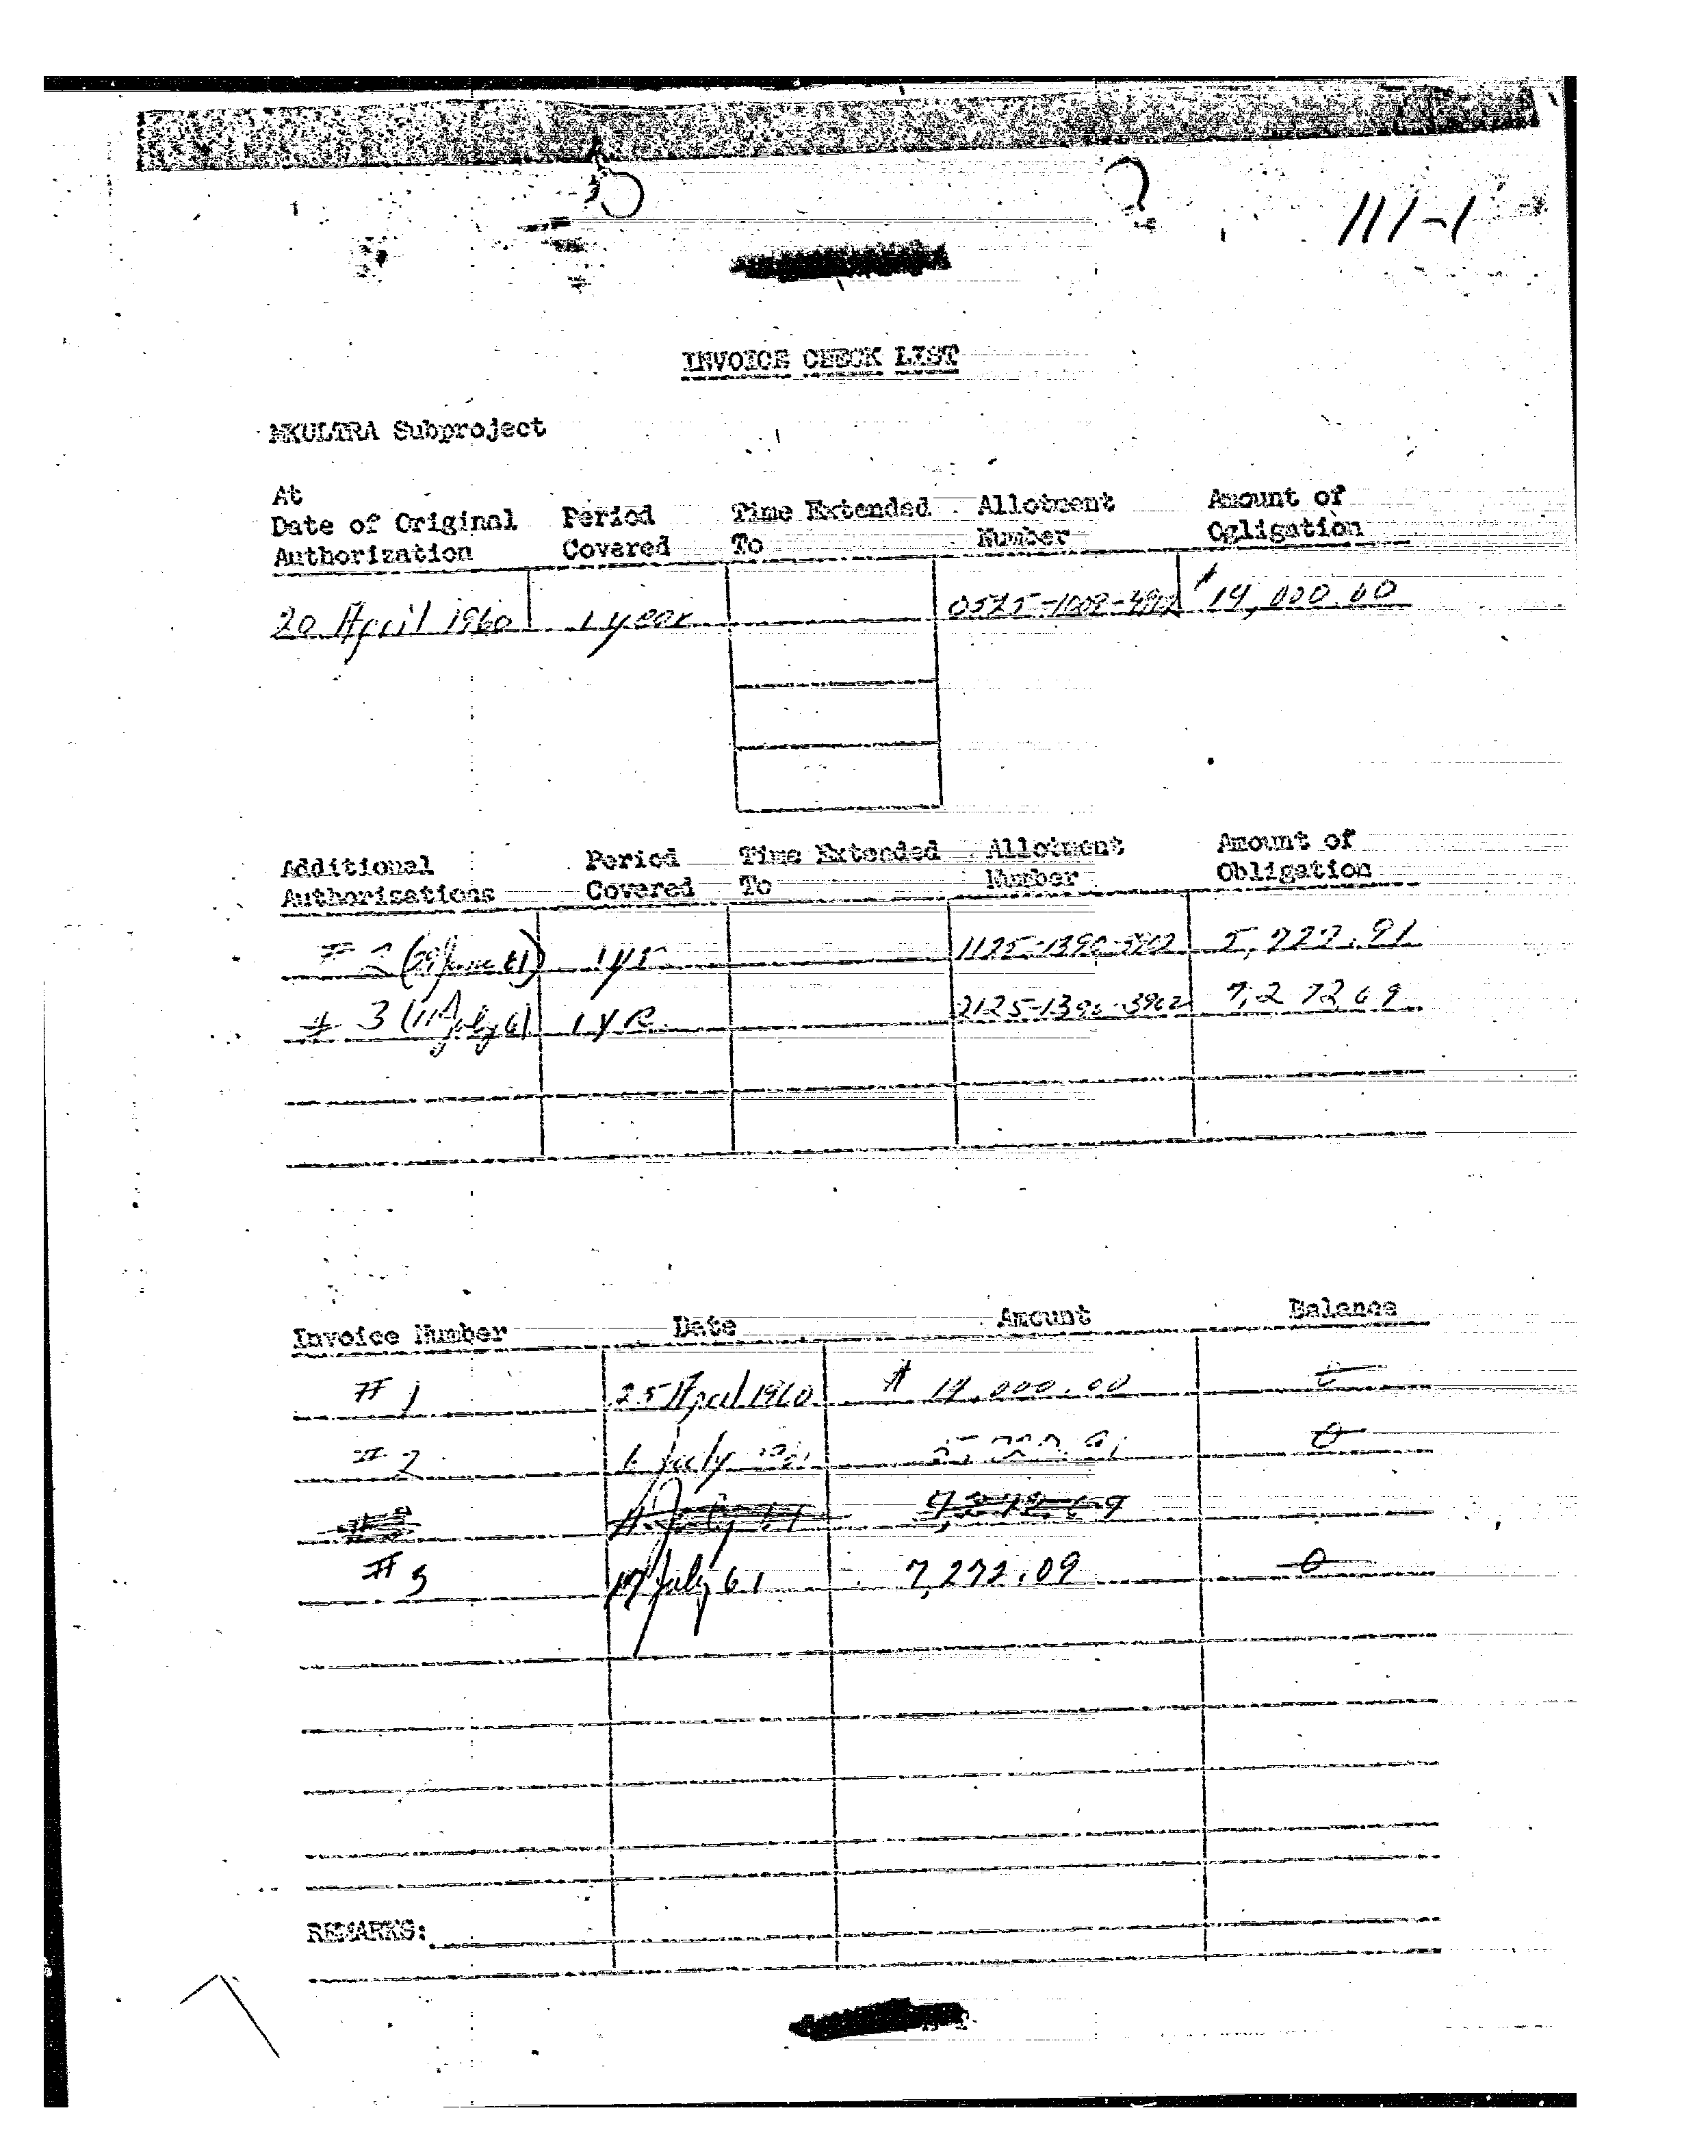 111-1
INVOICE CHECK LIST
MKULTRA Subproject
At
Date of Original Period Time Extended Allotment Amount of
Authorization Covered To Number Ogligation
20 April 1960 1 year $14,000.00
Additional Period Time Extended Allotment Amount of
Authorizations Covered To Number Obligation
# 2 (29 June 61) 1 yr 1125-1390-3902 5,727.91
# 3 (11 July 61) 1 YR 2125-1390-3902 7,272 09
Invoice Number Date Amount Balance
# 1 25 April 1960 $ 14,000.00 0
# 2 6 July 0
11 July 61 7,272.09
# 3 17 July 61 7,272.09 0
REMARKS: